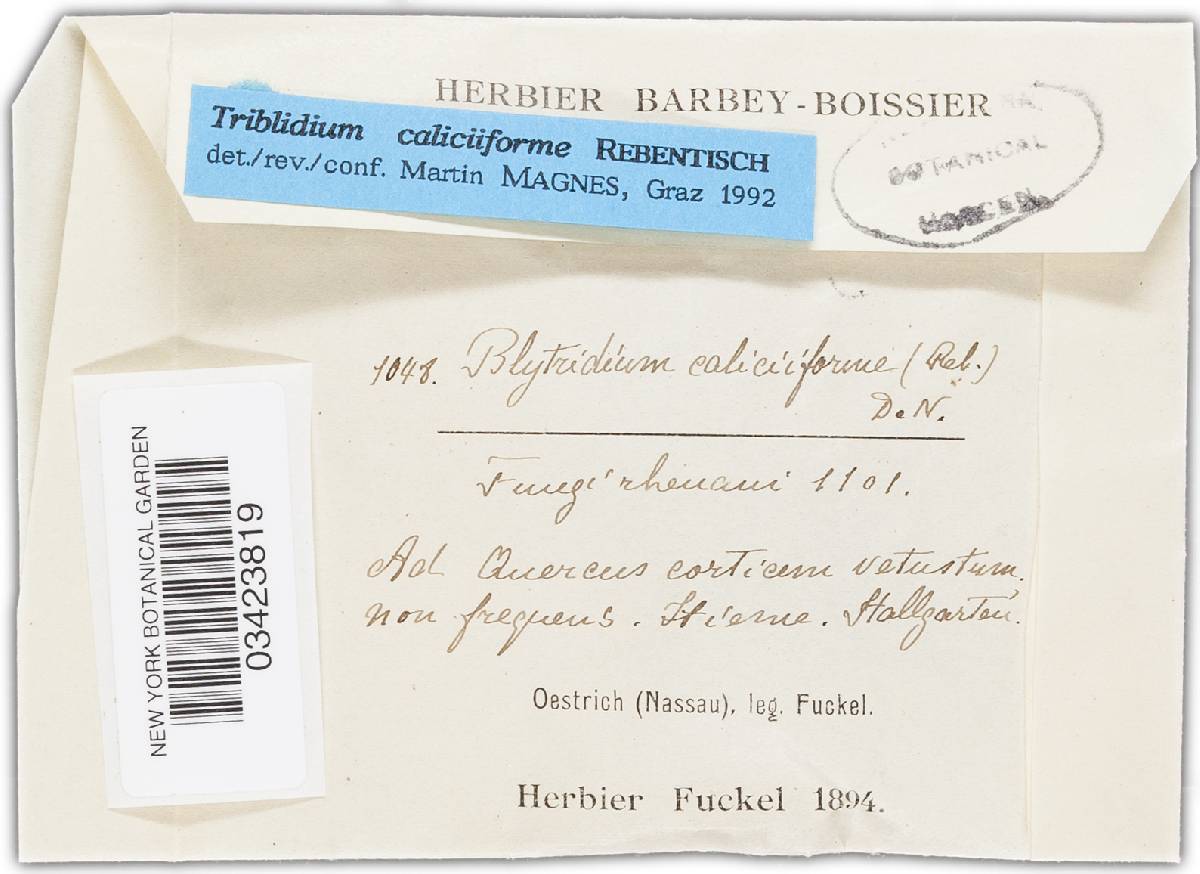 HERBIER BARBEY-BOISSIER
Triblidium caliciiforme REBENTISCH
det./rev./conf. Martin MAGNES, Graz 1992
BOTANICAL
1048. Blytridium caliciiforme (Reb.)
D. N.
Fungi rhenani 1101.
Ad Quercus corticem vetustum,
non frequens. Hieme. Hallgarten.
Oestrich (Nassau), leg. Fuckel.
Herbier Fuckel 1894.
NEW YORK BOTANICAL GARDEN
03423819